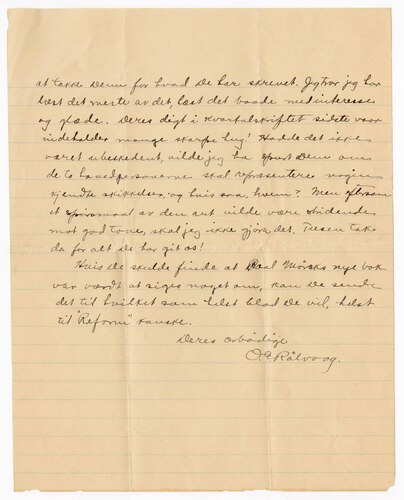 at takke Dem for hvad De har skrevet. Jeg tror jeg har
læst det meste av det, læst det baade med interesse
og glæde. Deres digt i Kvartalskriftet sidste vaar
indeholder mange skarpe hug! Hadde det ikke
været ubeskedent, vilde jeg ha spurt Dem om
de to hovedpersonerne skal repræsentere nogen
kjendte skikkelser, og hvis saa, hvem? Men eftersom
et spörsmaal av den art vilde være stridende
mot god tone, skal jeg ikke gjöre det. Tusen tak
da for alt De har git os!
Hvis De skulde finde at Paul Mørcks nye bok
var værdt at siges noget om, kan De sende
det til hvilket som helst blad De vil, helst
til "Reform" kanske.
Deres ærbødige
O. E. Rølvaag.